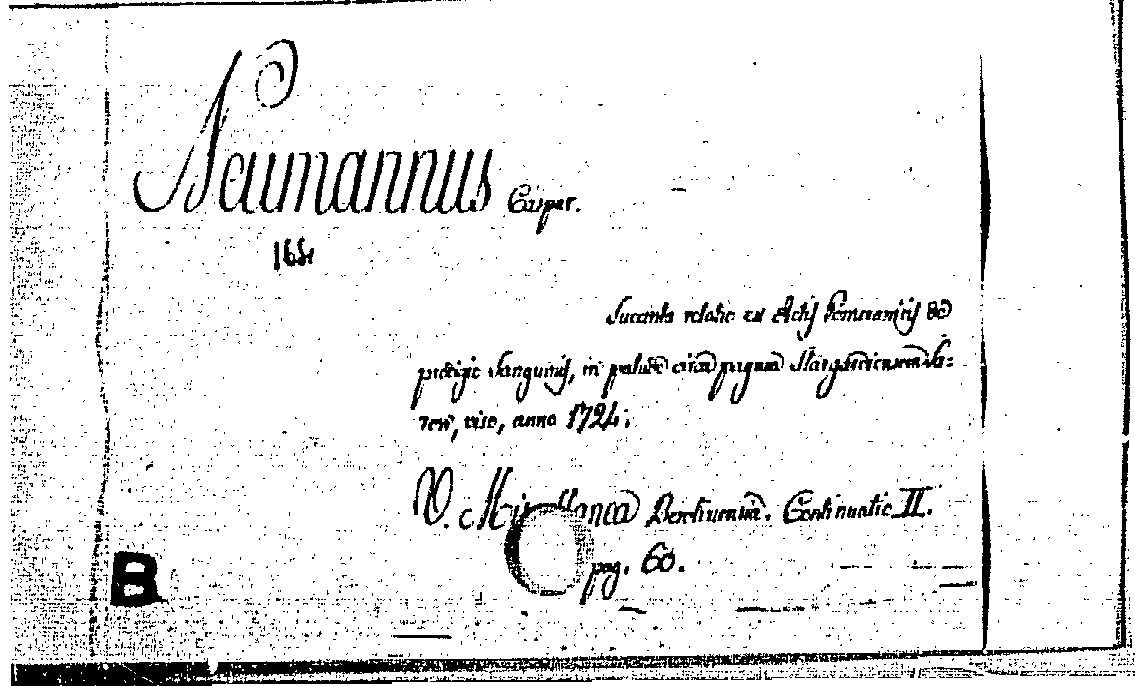 Neumannus Caspar.
Succincta relatio ex Actis Pomeranicis de
prodigio sanguinis, in palude circa pagum
viso, anno 1724;
V. Miscellanea Berolinensia. Continuatio II.
pag. 60.
B